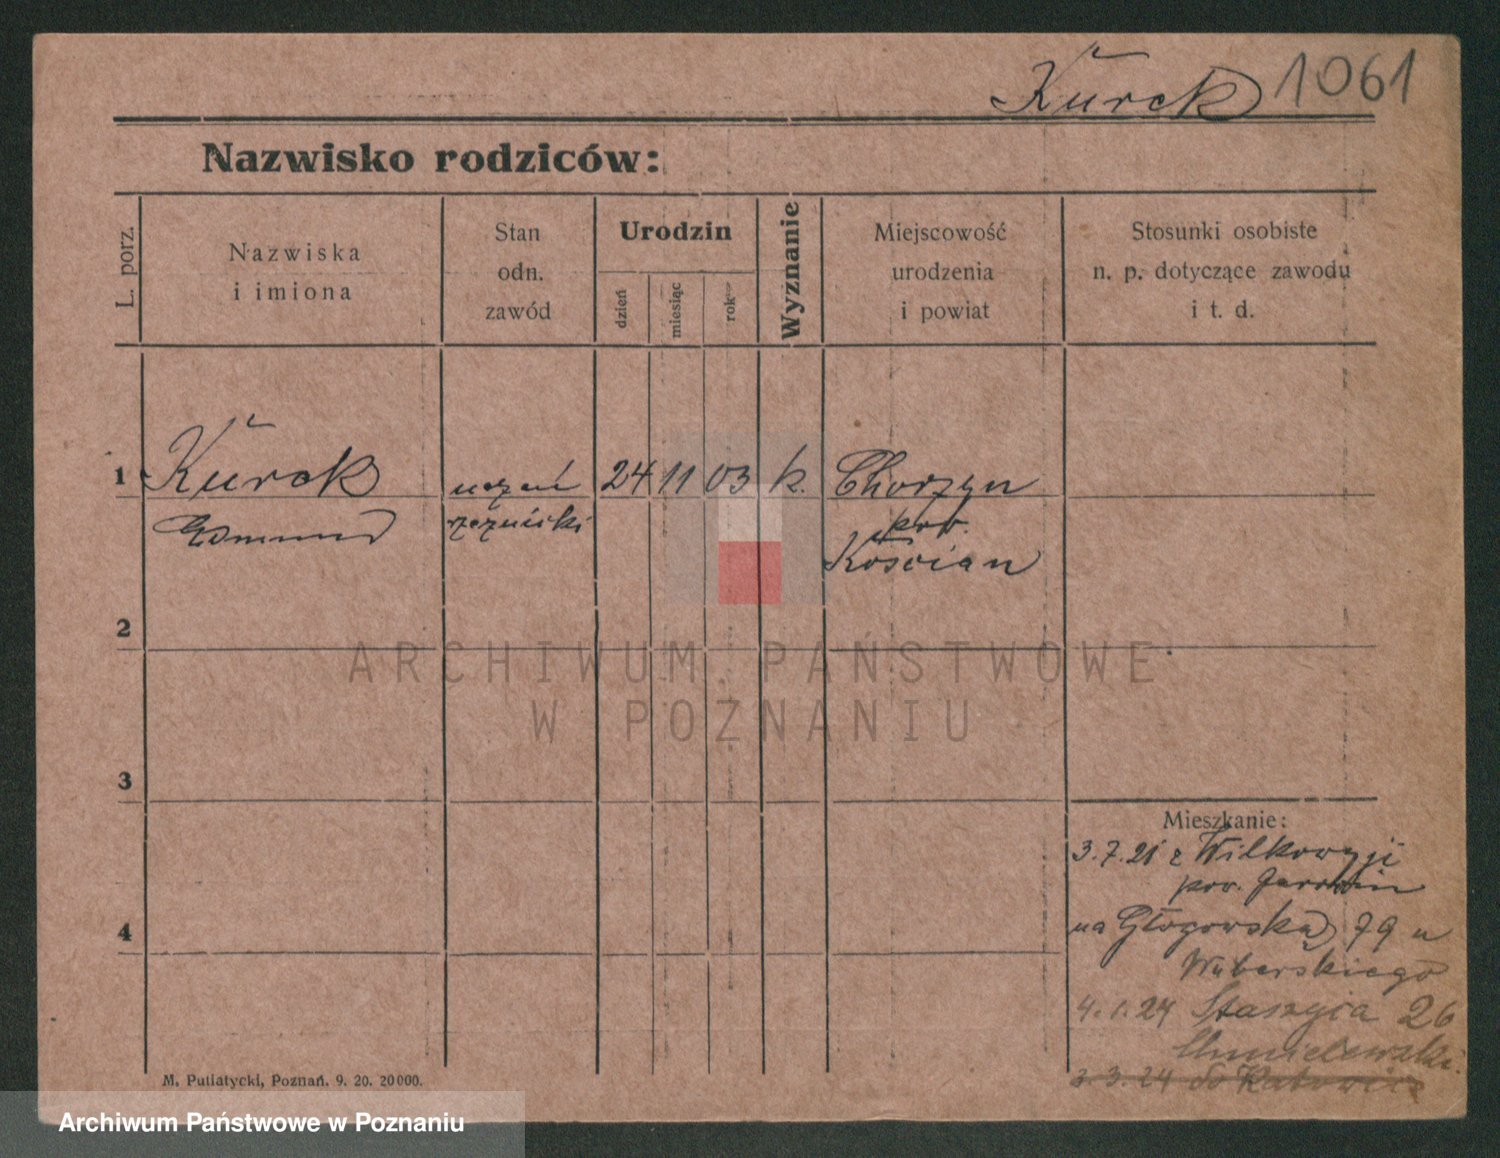 Kurck 1061
Nazwisko rodziców:
L. porz.
Nazwiska
i imiona
Stan
odn.
zawód
Urodzin
dzień
miesiąc
rok
Wyznanie
Miejscowość
urodzenia
i powiat
Stosunki osobiste
n. p. dotyczące zawodu
i t. d.
1 Kurck uczeń 24 11 03 k. Chorzyn
Edmund rzeźnicki pow.
Kościan
2
3
4
Mieszkanie:
3.7.21 z Wilkowyji
pow. Jarocin
na Głogowską 79 u
Wuberskiego
4.1.24 Staszyca 26
Chmielewski.
3.3.24 do Katowice
M. Putiatycki, Poznań. 9. 20. 20000.
ARCHIWUM PAŃSTWOWE
W POZNANIU
Archiwum Państwowe w Poznaniu